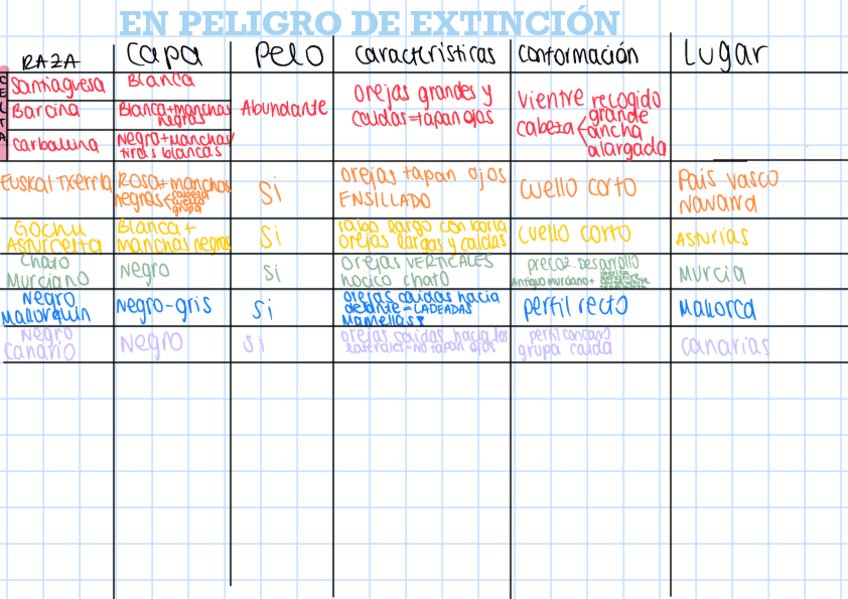 EN PELIGRO DE EXTINCIÓN
RAZA
Capa
Pelo
Características
Conformación
Lugar
CELTA
Santiaguesa
Blanca
Barcina
Blanca+manchas
negras
Carballina
Negro+manchas/
tiras blancas
Abundante
orejas grandes y
caídas=tapan ojos
Vientre recogido
cabeza
grande
ancha
alargada
Euskal Txerria
Rosa+manchas
negras
cabeza
grupa
Si
orejas tapan ojos
ENSILLADO
cuello corto
País vasco
Navarra
Gochu
Asturcelta
Blanca+
manchas negras
Si
rabo largo con borla
orejas largas y caídas
cuello corto
ASturias
Chato
Murciano
Negro
Si
orejas VERTICALES
hocico chato
precoz. Desarrollo
Antiguo murciano+
Murcia
Negro
Mallorquín
Negro-gris
Si
orejas caídas hacia
delante=LADEADAS
Mamellas?
perfil recto
Mallorca
Negro
Canario
Negro
Si
orejas caídas hacia los
laterales=no tapan ojos
perfil concavo
grupa caída
Canarias